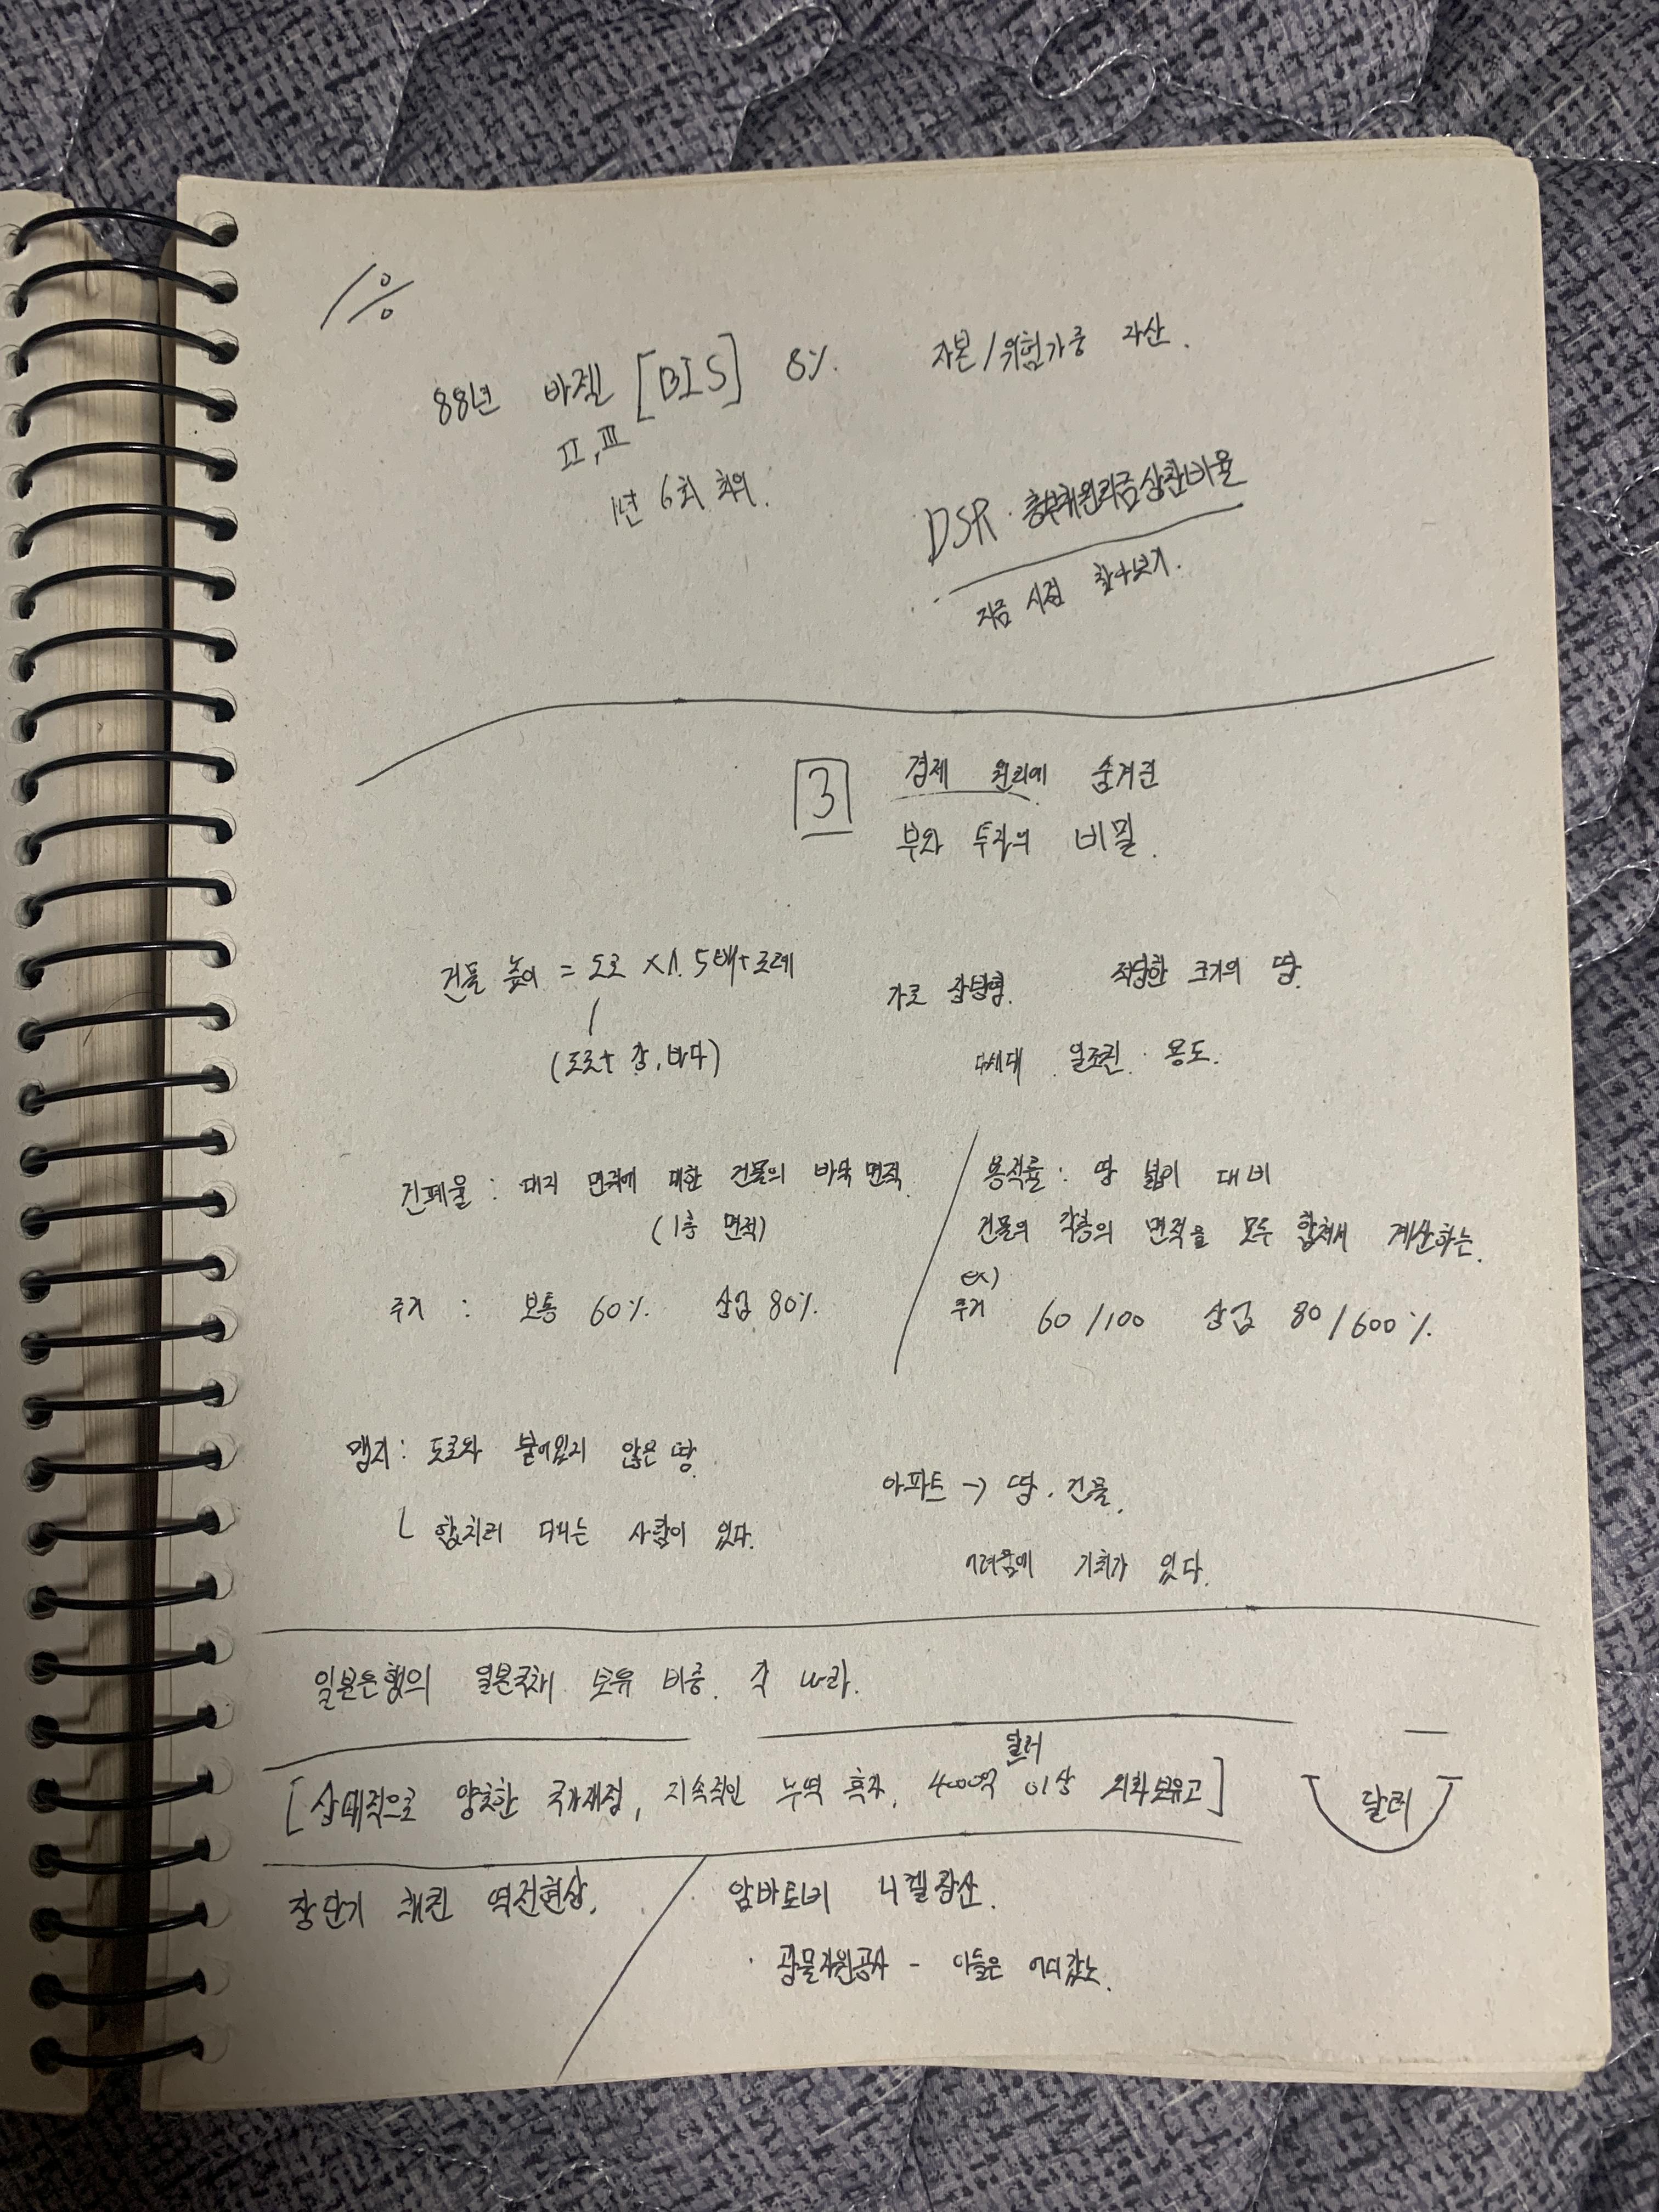 1%
88년 바젤 [BIS] 8% 자본/위험가중 자산.
II, III
1년 6회 회의.
DSR. 총부채원리금상환비율
지금 시점 찾아보기.
3 경제 원리에 숨겨진
부와 투자의 비밀.
건물 높이 = 도로 × 1.5배 + 조례
(도로 + 강, 바다)
가로 장방형. 적당한 크기의 땅.
다세대 일조권. 용도.
건폐율 : 대지 면적에 대한 건물의 바닥 면적.
(1층 면적)
주거 : 보통 60% 상업 80%.
용적률 : 땅 넓이 대비
건물의 각층의 면적을 모두 합쳐서 계산하는.
ex)
주거 60/100 상업 80/600%.
맹지 : 도로와 붙어있지 않은 땅.
ㄴ 합치러 다니는 사람이 있다.
아파트 → 땅. 건물.
어려움에 기회가 있다.
일본은행의 일본국채 보유 비중. 각 나라.
달러
[상대적으로 양호한 국가재정, 지속적인 무역 흑자, 4000억 이상 외화보유고]
달러
장단기 채권 역전현상.
암바토비 니켈광산.
· 광물자원공사 - 이들은 어디갔노.